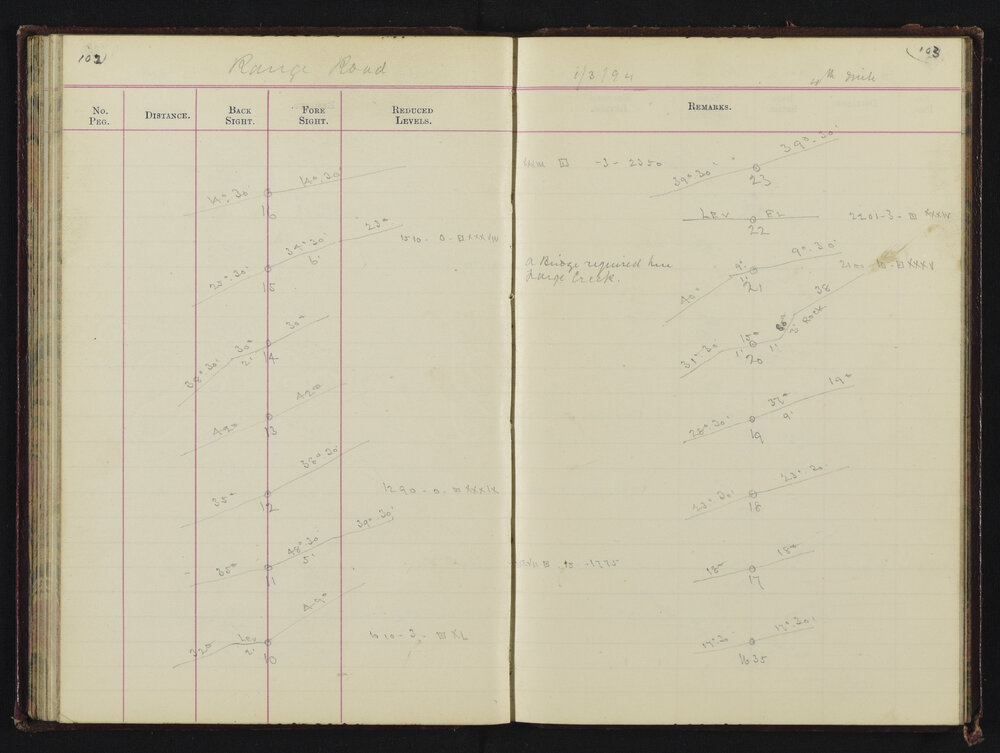 102
Range Road
No. Peg. Distance. Back Sight. Fore Sight. Reduced Levels.
14°.30 14°.30'
16
23°
34°.30' 6'
25°.30'
15
1510 - 0 - III XXXVIII
30°
30° 2'
38°.30'
14
42°
42°
13
38°.30'
35°
12
1290 - 0 - III XXXIX
39°.30'
48°.30 5'
35°
11
49°
Lev 2'
32°
10
1010 - 3 - III XL
103
1/3/94
4th mile
Remarks.
III -3 - 2350
39°.30' 39°.30'
23
LEV EL
22
2201 - 3 - III XXXIV
A Bridge required here
Large Creek.
9°.30'
9° 1'
40°
21
2100 - 10 - III XXXV
38
80° 2' Rock
15° 1' 1'
31°.30'
20
19°
37° 9'
28°.30'
19
23°.30' 23°.30'
18
III - 10 - 1775
18° 18°
17
17°.30' 17°.30'
1635